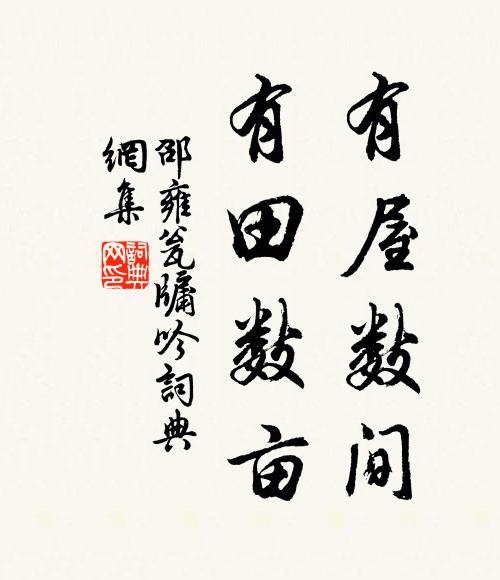 有屋数间
有田数亩
邵雍瓮牖吟词典
網集
詞典
网印